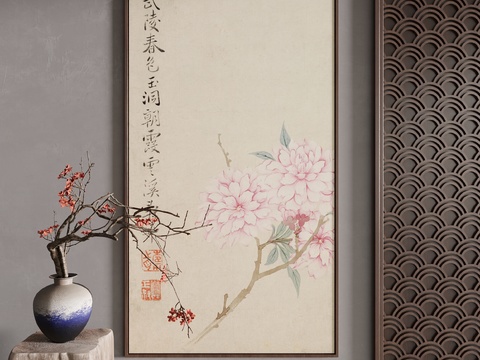 武陵春色玉洞朝霞雲溪